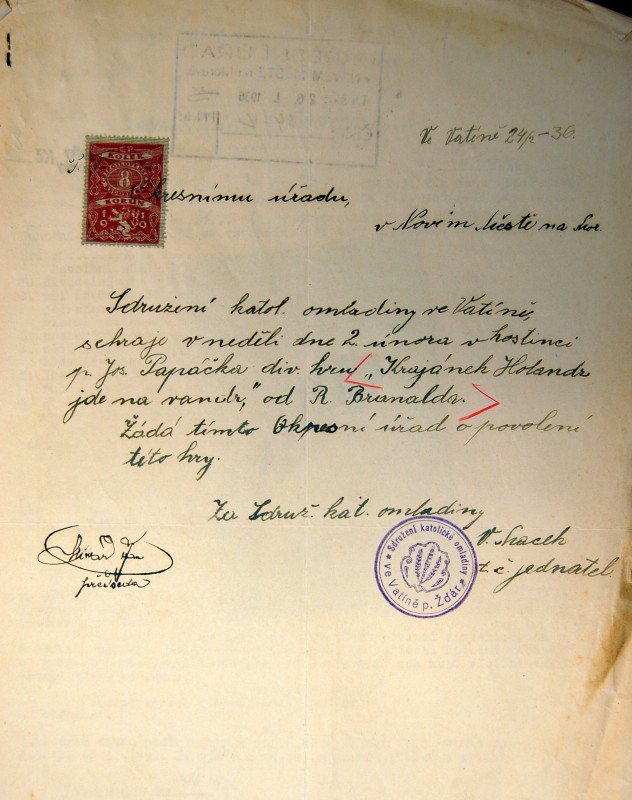 Ve Vatíně 24/1-36.
KOLEK
8
KORUN
1919
kresnímu úřadu,
v Novém Městě na Mor.
Sdružení katol. omladiny ve Vatíně,
sehraje v neděli dne 2. února v hostinci
p. Jos. Papáčka div. hru „Krajánek Holandr
jde na vandr," od R. Branalda.
Žádá tímto Okresní úřad o povolení
této hry.
Za Sdruž. kat. omladiny
předseda
Sdružení katolické omladiny
ve Vatíně p. Žďár.
V. Macek
t.č. jednatel.